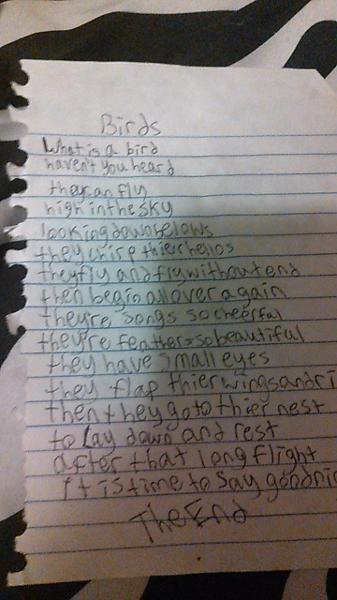 Birds
What is a bird
haven't you heard
they can fly
high in the sky
looking down belows
they chirp thier hellos
they fly and fly without end
then begin all over again
they're songs so cheerful
they're feathers so beautiful
they have small eyes
they flap thier wings and ri
then they go to thier nest
to lay down and rest
after that long flight
It is time to say goodnig
The End